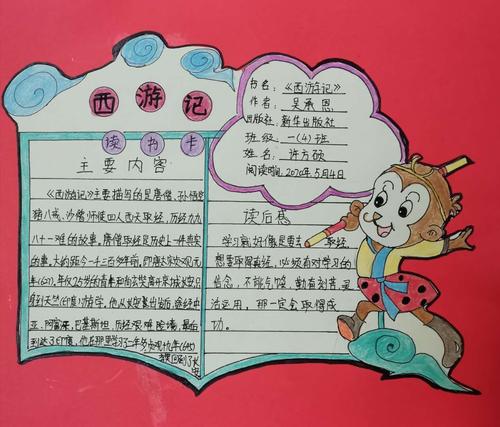 西游记
读书卡
书名:《西游记》
作者:吴承恩
出版社:新华出版社
班级:一(4)班
姓名:许方硕
阅读时间:2020年5月4日
主要内容
《西游记》主要描写的是唐僧、孙悟空
猪八戒、沙僧师徒四人西天取经,历经九九
八十一难的故事。唐僧取经是历史上一件真实
的事。大约距今一千三百多年前,即唐太宗贞观元
年(627),年仅25岁的青年和尚玄奘离开京城长安只
身到天竺(印度)游学。他从长安出发后,途经中
亚、阿富汗、巴基斯坦,历经艰难险境,最后
到达了印度。他在那里学习了两年多
读后感
学习就好像是唐去取经
想要取得真经,必须有对学习的
信念,不能气馁,勤奋刻苦,灵
活运用,那一定会取得成
功。